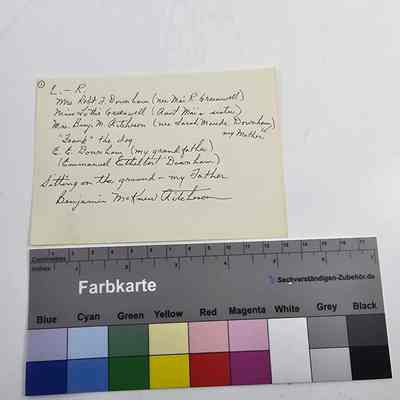 ①
L. - R.
Mrs Robt J Downham (nee Mai R. Greenwell)
Miss Lottie Greenwell (Aunt Mai's sister)
Mrs. Benj. M. Hitchison (nee Sarah Maude Downham)
my Mother
the dog
E. E. Downham (my grandfather)
(Emmanuel Ethelbert Downham)
Sitting on the ground - my Father
Benjamin McKnew
Centimetres 1 2 3 4 5 6 7 8 9 10 11 12 13 14 15 16 17
Inches 1 2 3 4 5 6 7
Farbkarte
Sachverständigen-Zubehör.de
Blue Cyan Green Yellow Red Magenta White Grey Black